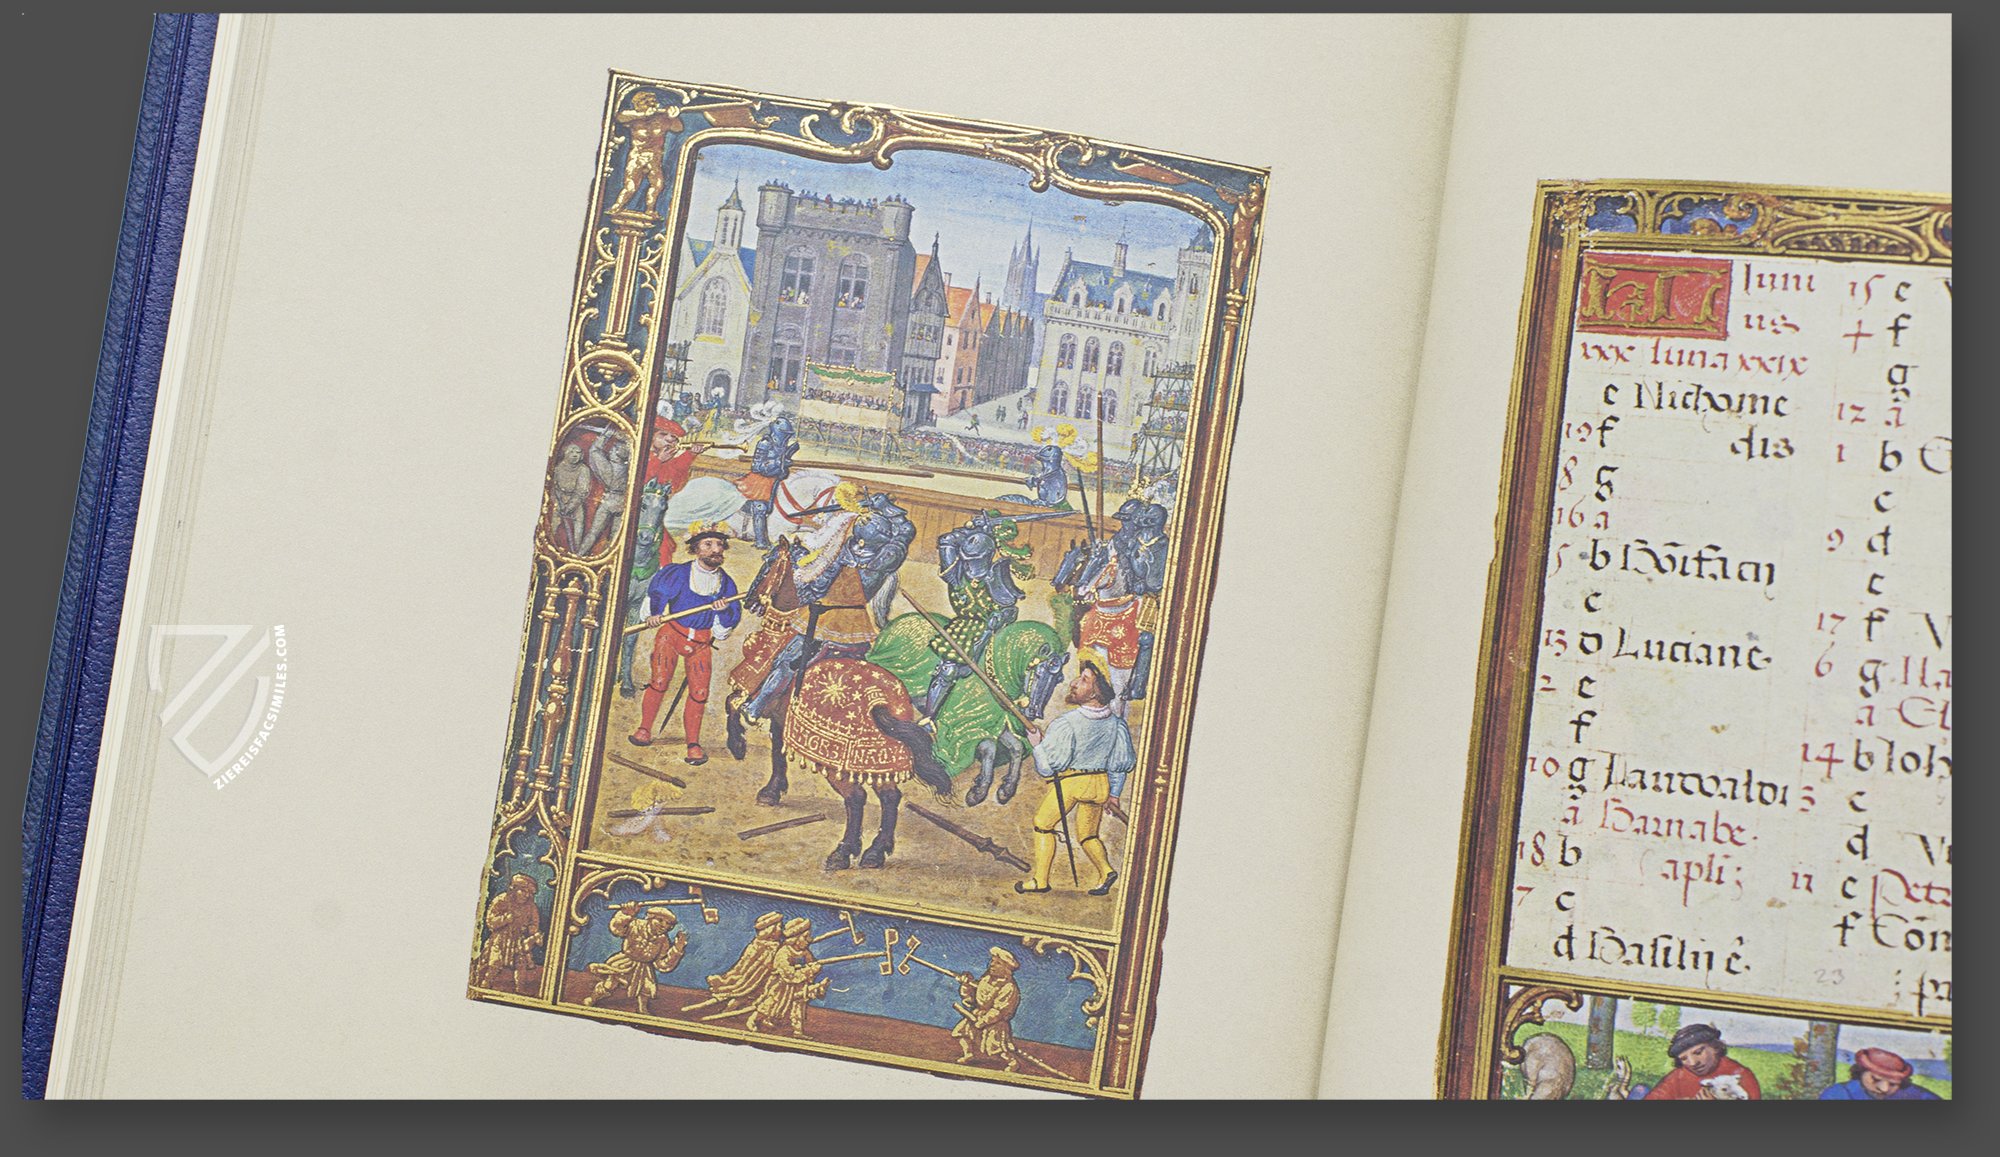 ZIEREISFACSIMILES.COM
KL Iuni
us
xxx luna xxix
e Nichome
19 f dis
8 g
16 a
5 b Bonifacii
c
13 d Luciane
2 e
f
10 g
a Barnabe
18 b apli
7 c
d Basilii
15 e
+ f
g
12 a
1 b
c
9 d
e
17 f
6 g
a
14 b Ioh
3 c
d
11 e Petr
f Com
23